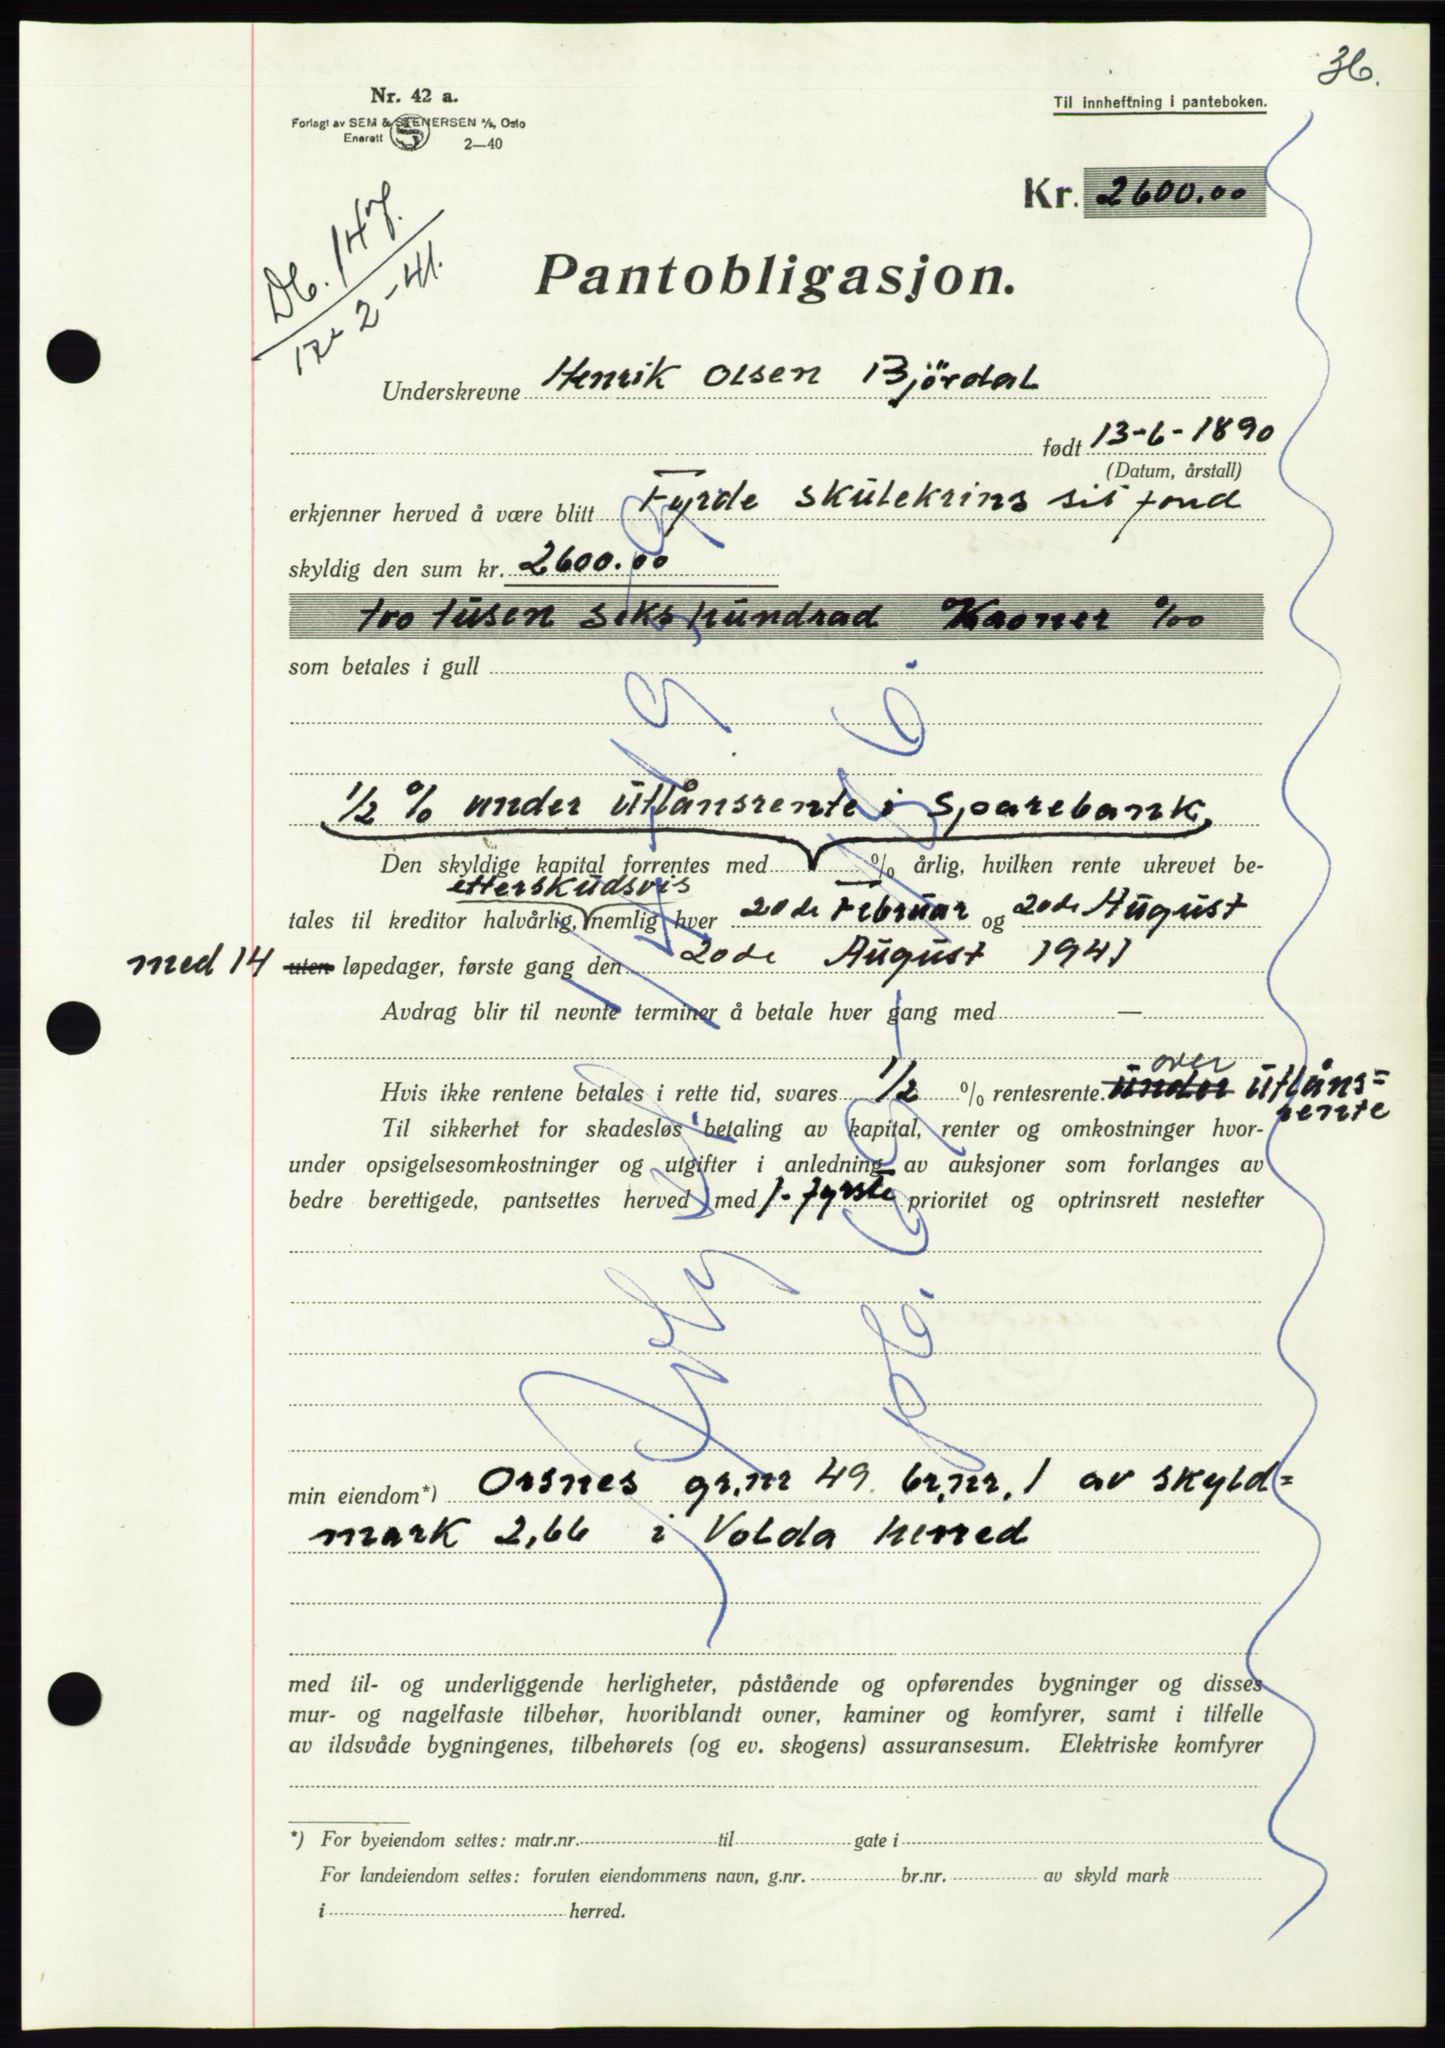 36.
Nr. 42 a.
Til innheftning i panteboken.
Forlagt av SEM & STENERSEN A/S, Oslo
Enerett
2—40
Kr. 2600.00
Db. 147.
12/2-41.
Pantobligasjon.
Underskrevne Henrik Olsen Björdal
født 13-6-1890
(Datum, årstall)
erkjenner herved å være blitt Fyrde skulekrins sit fond
skyldig den sum kr. 2600.00
to tusen seks hundrad Kroner %oo
som betales i gull
1/2 % under utlånsrente i Sparebank,
Den skyldige kapital forrentes med % årlig, hvilken rente ukrevet be-
etterskudsvis
tales til kreditor halvårlig, nemlig hver 20de Februar og 20de August
med 14 uten løpedager, første gang den 20de August 1941
Avdrag blir til nevnte terminer å betale hver gang med —
over
Hvis ikke rentene betales i rette tid, svares 1/2 % rentesrente. under utlåns=
rente
Til sikkerhet for skadesløs betaling av kapital, renter og omkostninger hvor-
under opsigelsesomkostninger og utgifter i anledning av auksjoner som forlanges av
bedre berettigede, pantsettes herved med 1. fyrste prioritet og optrinsrett nestefter
min eiendom*) Orsnes gr.nr 49. br.nr. 1 av skyld=
mark 2,66 i Volda herred
med til- og underliggende herligheter, påstående og opførendes bygninger og disses
mur- og nagelfaste tilbehør, hvoriblandt ovner, kaminer og komfyrer, samt i tilfelle
av ildsvåde bygningenes, tilbehørets (og ev. skogens) assuransesum. Elektriske komfyrer
*) For byeiendom settes: matr.nr. til gate i
For landeiendom settes: foruten eiendommens navn, g.nr. br.nr. av skyld mark
i herred.